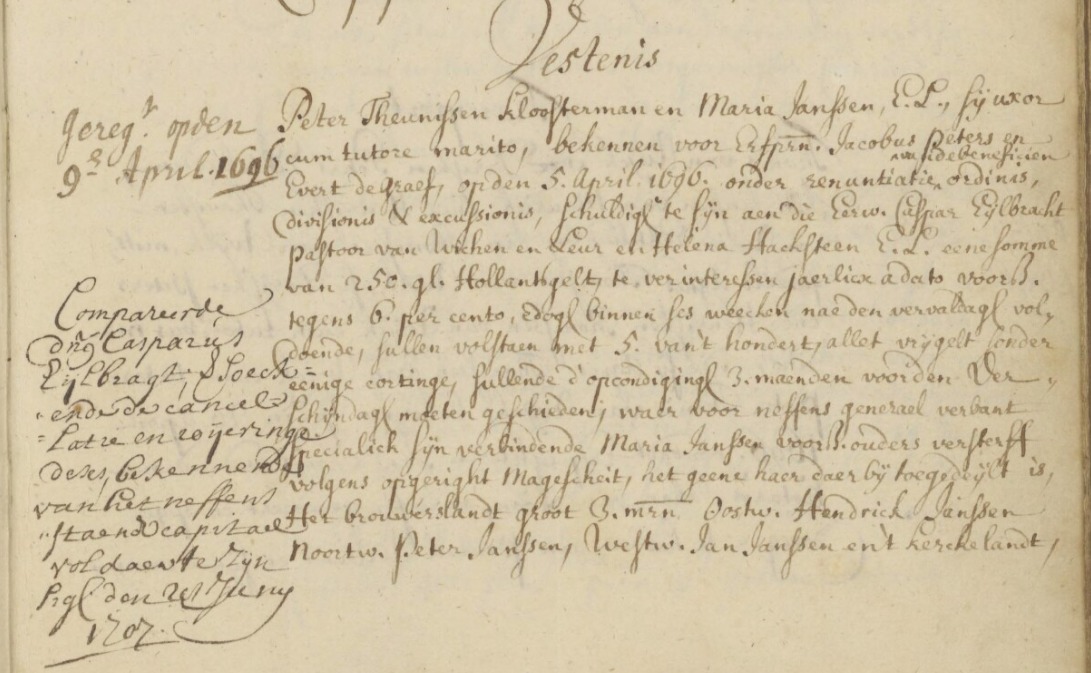 Vestenis
Geregr. opden
9e April. 1696
Peter Theunissen Kloosterman en Maria Janssen, E.L., sij uxor
cum tutore marito, bekennen voor Erfprn. Jacobus Peters en
Evert de Graef, op den 5. April 1696. onder renuntiatie van de beneficien ordinis,
divisionis & excussionis, schuldigh te sijn aen die Eerw. Caspar Eijlbracht
pastoor van Wichen en Leur en Helena Hacksteen E.L. eene somme
van 250. gl. Hollants gelt, te verinteressen jaerlicx a dato voorß.
tegens 6. per cento, edogh binnen ses weecken nae den vervaldagh vol-
doende, sullen volstaen met 5. van't hondert, allet vrij gelt sonder
eenige cortinge, sullende d'opcondigingh 3. maenden voor den Ver-
schijndagh moeten geschieden; waer voor neffens generael verbant
specialick sijn verbindende Maria Janssen voorß. ouders versterff
volgens opgeright Magescheit, het geene haer daer bij toegedeijlt is,
Het brouwerslandt groot 3. mrn Oostw. Hendrick Janssen
Noortw. Peter Janssen, Westw. Jan Janssen en't Kerckelandt,
Compareerde
dns Casparus
Eijlbragt, versoeck-
ende de cancel-
latie en roijeringe
deses, bekennende
van het neffens
staende capitael
voldaen te zijn
den 21 Junij
1707.